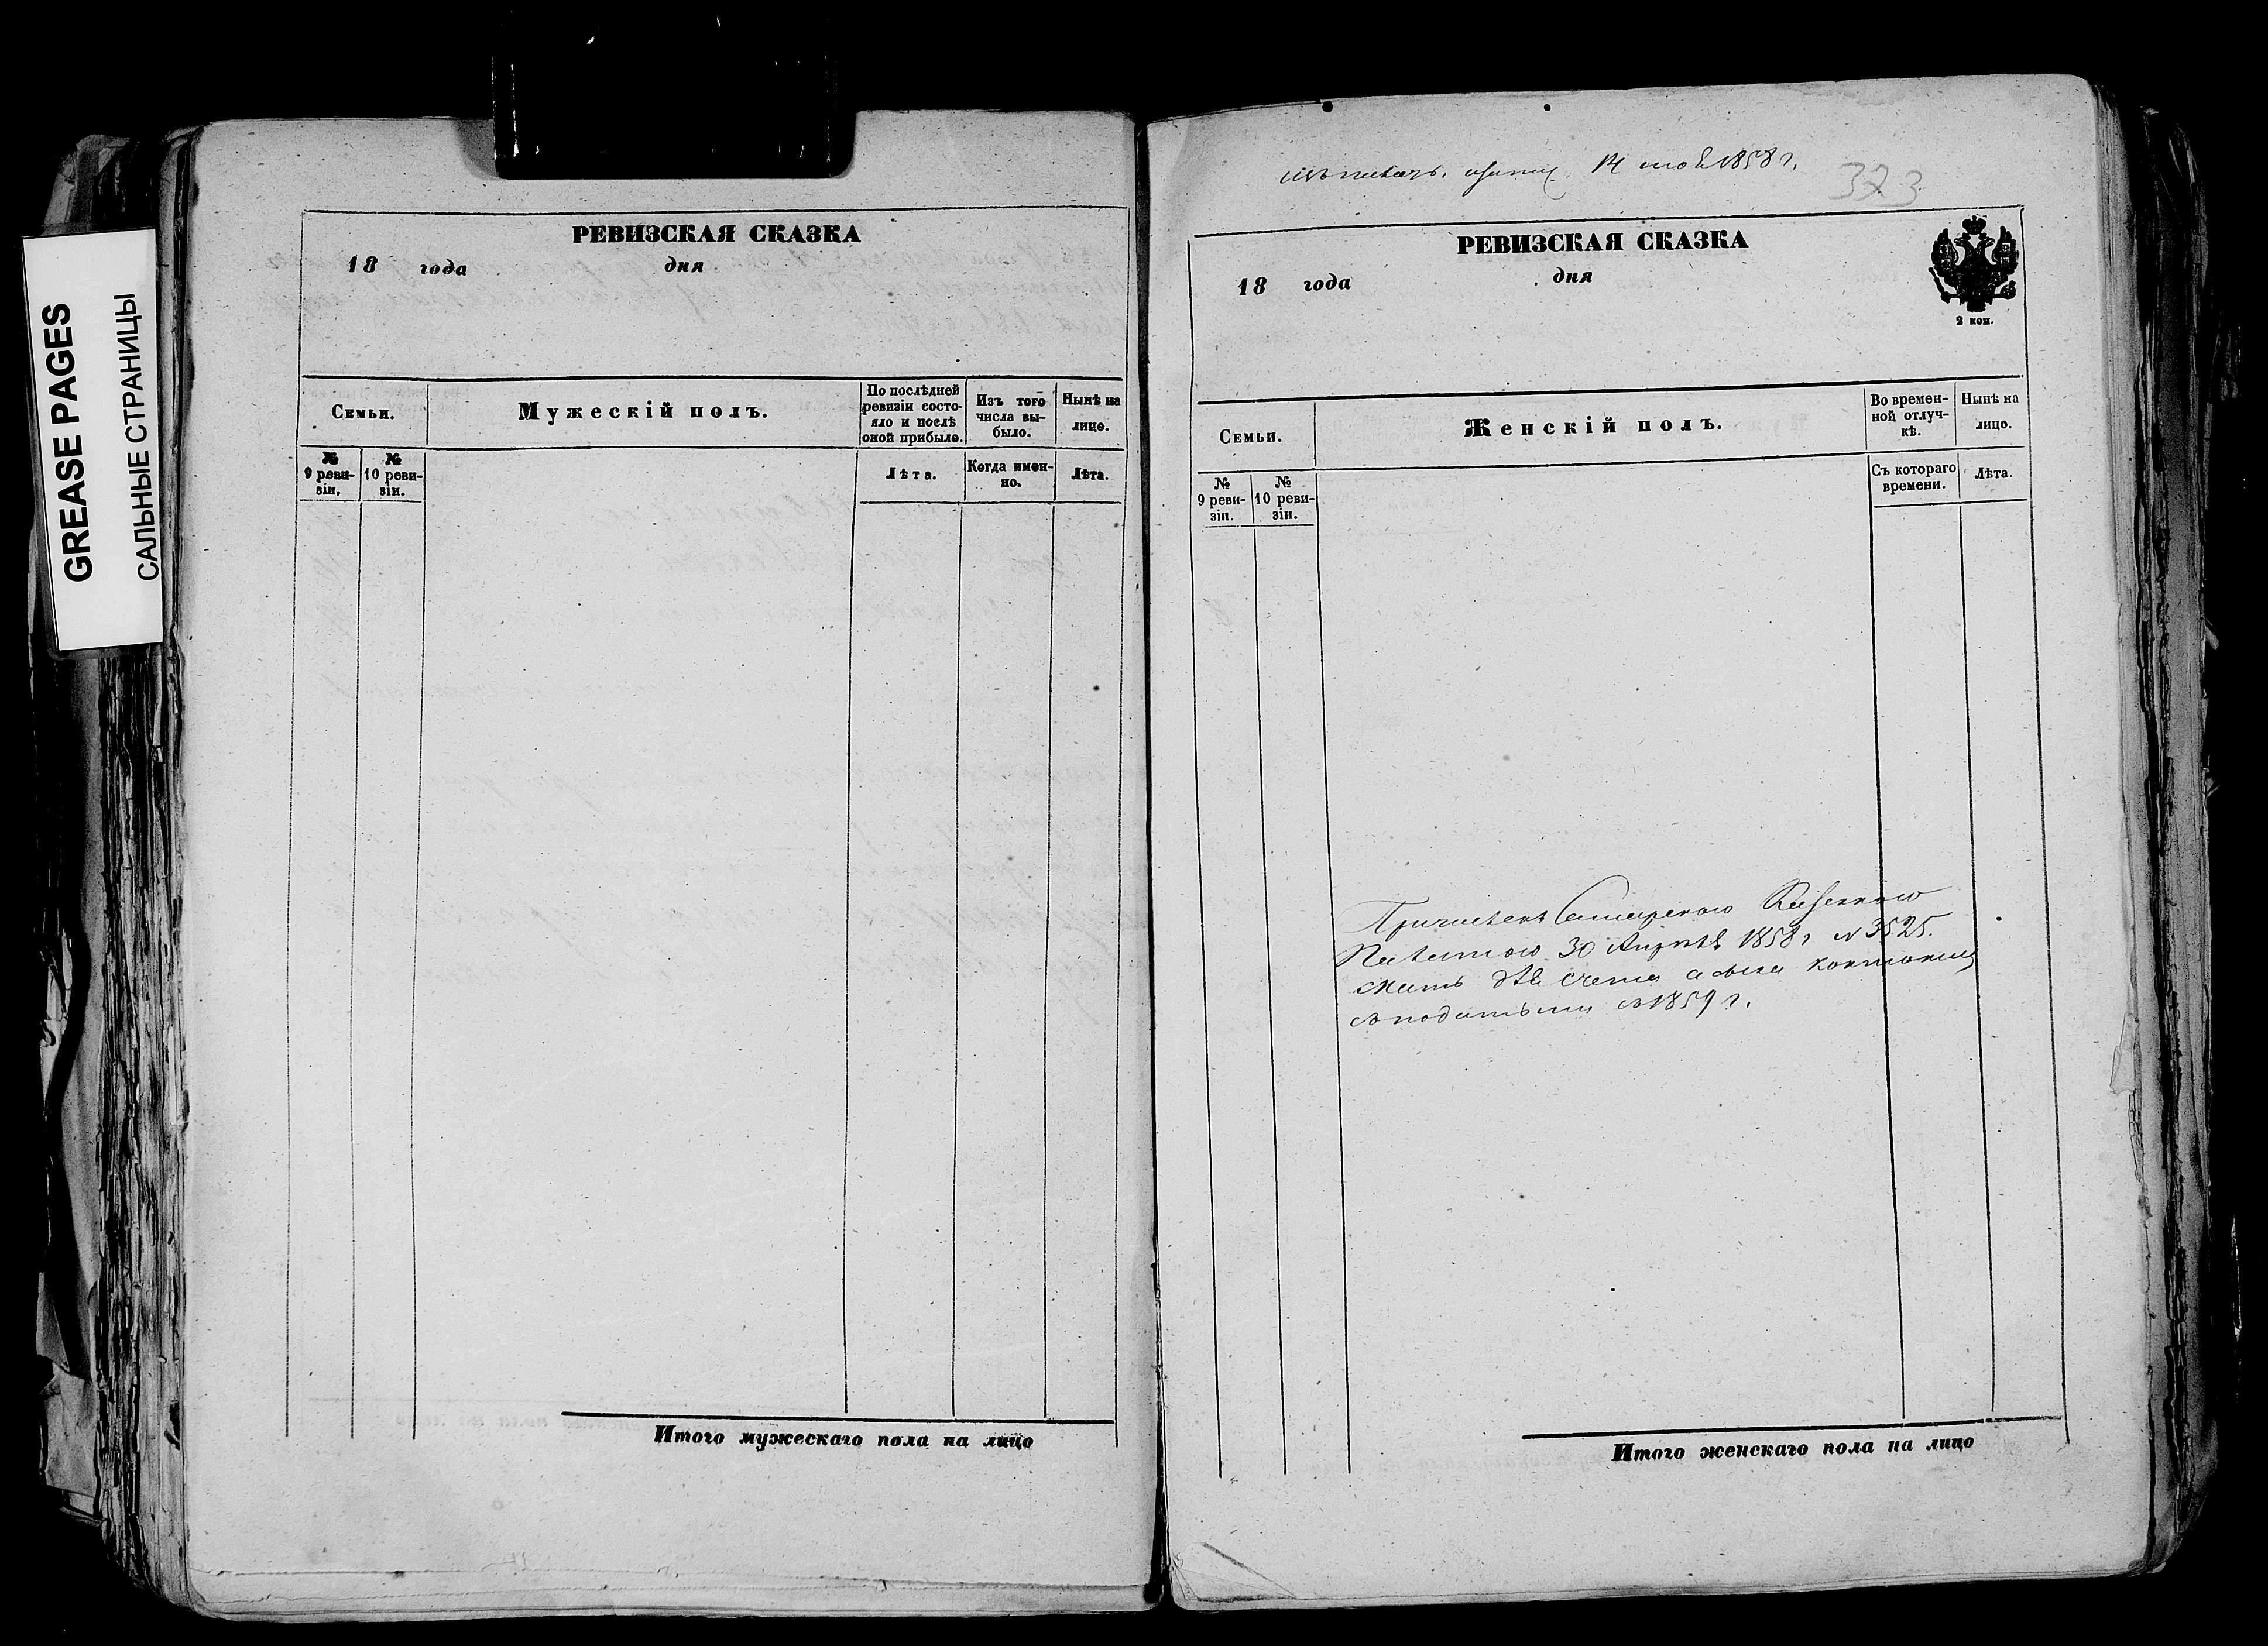 GREASE PAGES
САЛЬНЫЕ СТРАНИЦЫ
РЕВИЗСКАЯ СКАЗКА
18 года дня
Семьи.
Мужескій полъ.
По послѣдней ревизіи состо-
яло и послѣ оной прибыло.
Изъ того числа вы-
было.
Нынѣ на лицо.
№ 9 реви-
зіи.
№ 10 реви-
зіи.
Лѣта.
Когда имен-
но.
Лѣта.
Итого мужескаго пола на лицо
14 1858 г.
323
РЕВИЗСКАЯ СКАЗКА
18 года дня
2 коп.
Семьи.
Женскій полъ.
Во времен-
ной отлуч-
кѣ.
Нынѣ на лицо.
№ 9 реви-
зіи.
№ 10 реви-
зіи.
Съ котораго времени.
Лѣта.
Причислены Самарскою Казенною
Палатою 30 Апрѣля 1858 г N 3525.
съ податьми съ 1859 г.
Итого женскаго пола на лицо